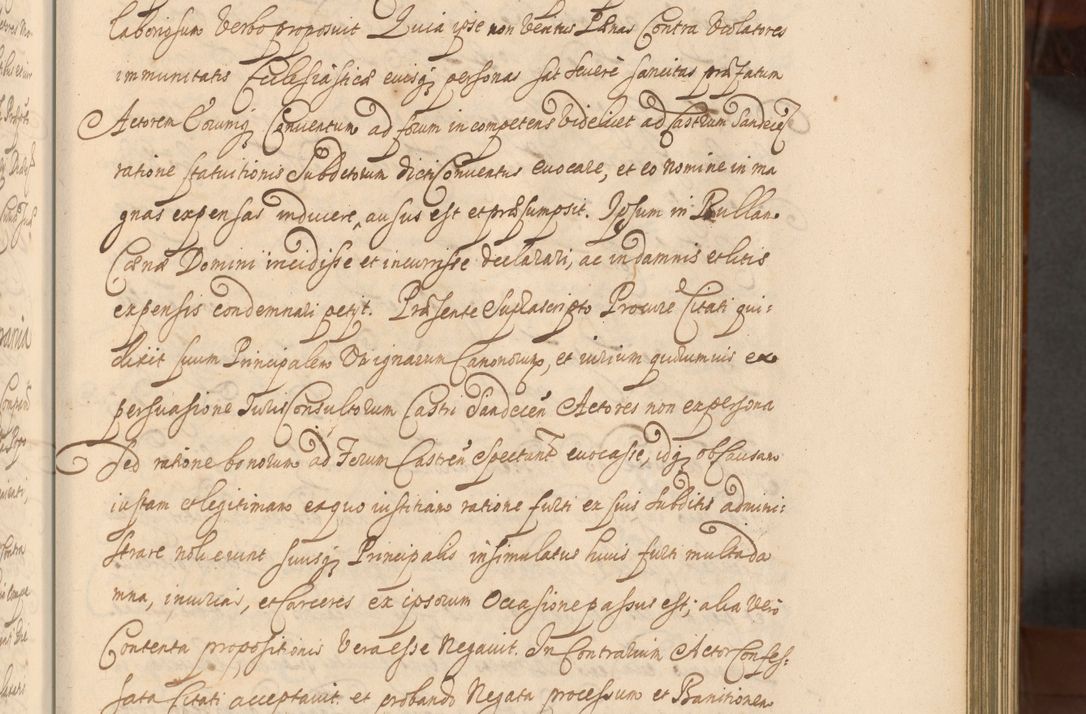 laboriosum verbo proposuit Quia ipse non veritus Pænas Contra Violatores
immunitatis Ecclesiasticæ eiusq personas sat severè sancitas præfatum
Actorem Eorumq Conventum ad forum incompetens videlicet ad Castrum Sandecen
ratione statuitionis Subditorum dicti Conventus evocare, et eo nomine in ma
gnas expensas inducere, ausus est et præsumpsit. Ipsum in Bullam
Cænæ Domini incidisse et incurrisse declarari, ac in damnis et litis
expensis condemnari petyt. Præsente suprascripto Procure Citati qui
dixit suum Principalem ignarum Canonorum, et iurium quorumvis ex
persuasione Juris Consultorum Castri Sandecen Actores non ex persona
sed ratione bonorum ad Forum Castren spectant evocasse, idq ob causam
iustam et legitimam ex quo iustitiam ratione furti ex suis subditis admini:
strare noluerunt suusq Principalis insimulatus huius furti multa da
mna, iniurias, et carceres ex ipsorum occasione passus est; alia vero
Contenta propositionis vera esse Negavit. In Contrarium Actor Confes:
sata Citati acceptavit et probando Negata processum et Banitionem